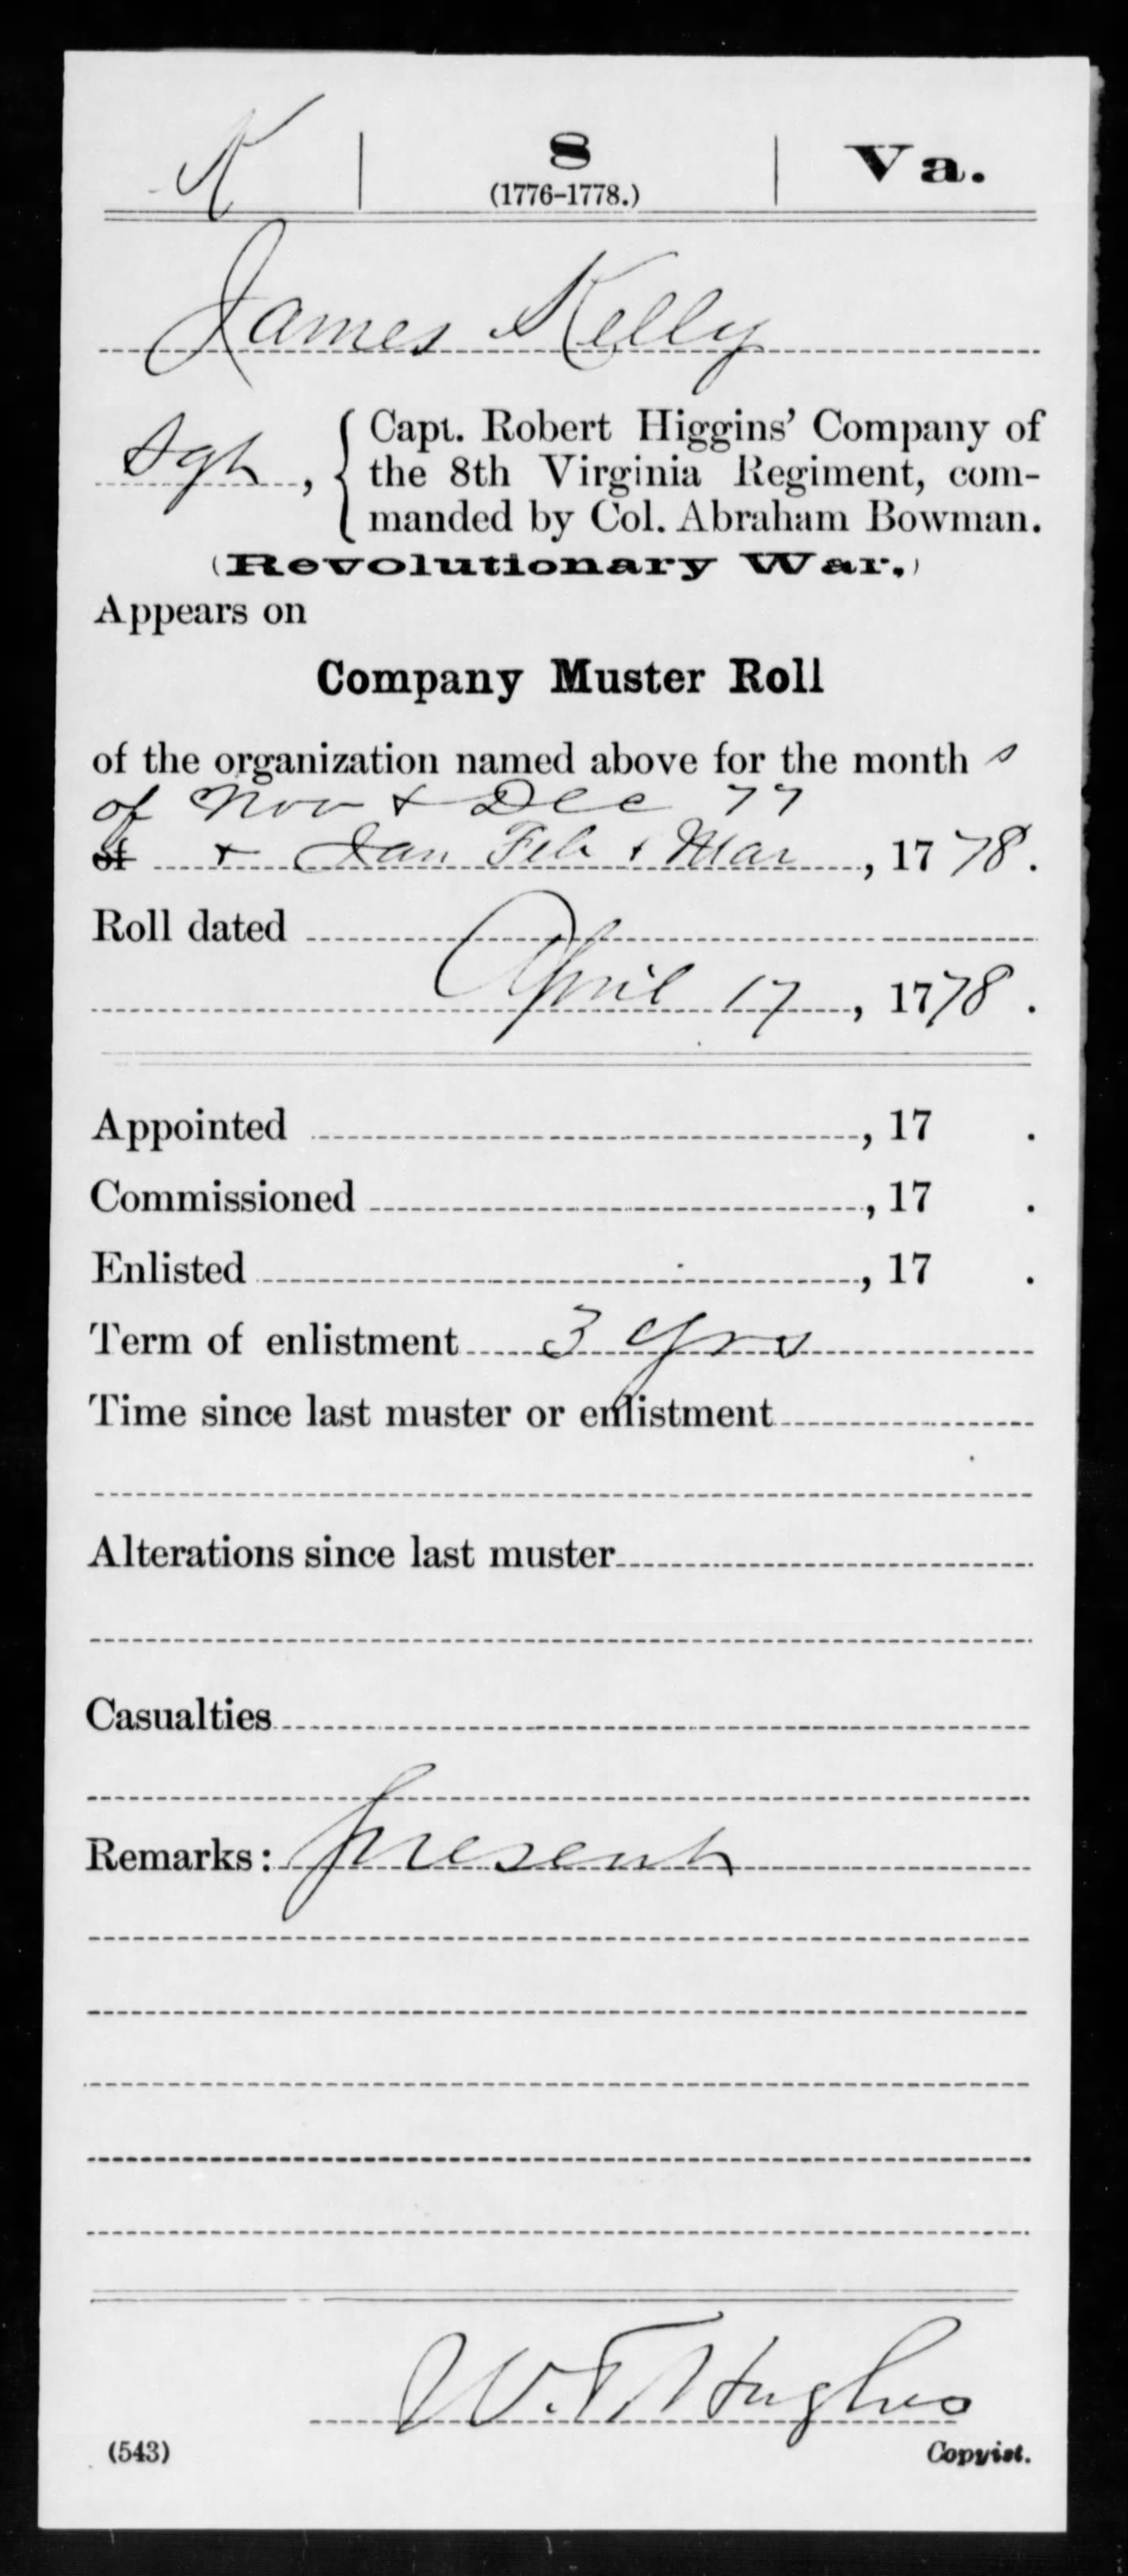 K | 8 | Va.
(1776-1778.)
James Kelly
Sgt, { Capt. Robert Higgins' Company of
the 8th Virginia Regiment, com-
manded by Col. Abraham Bowman.
(Revolutionary War.)
Appears on
Company Muster Roll
of the organization named above for the months
of Nov & Dec 77
of & Jan Feb & Mar, 1778.
Roll dated
April 17, 1778.
Appointed , 17 .
Commissioned , 17 .
Enlisted , 17 .
Term of enlistment 3 yrs
Time since last muster or enlistment
Alterations since last muster
Casualties
Remarks: present
W. T. Hughes
(543) Copyist.